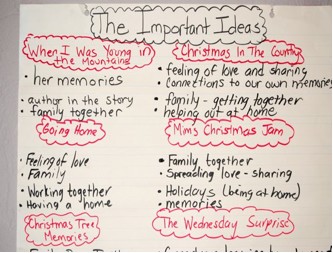 The Important Ideas
When I Was Young in
the Mountains
• her memories
• author in the story
• family together
Christmas In The Country
• feeling of love and sharing
• connections to our own memories
• family - getting together
• helping out at home
Going Home
• Feeling of love
• Family
• Working together
• Having a home
Mim's Christmas Jam
• Family together
• Spreading love - sharing
• Holidays (being at home)
• memories
Christmas Tree
Memories
The Wednesday Surprise